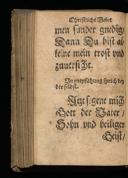 Christliche Gebet
men sünder gnedig/
Dann Du bist al-
leine mein trost und
zuuersicht.
Im entpfahung sprich bey
dir selbst.
Jetzt segene mich
Gott der Vater/
Sohn und heiliger
Geist/